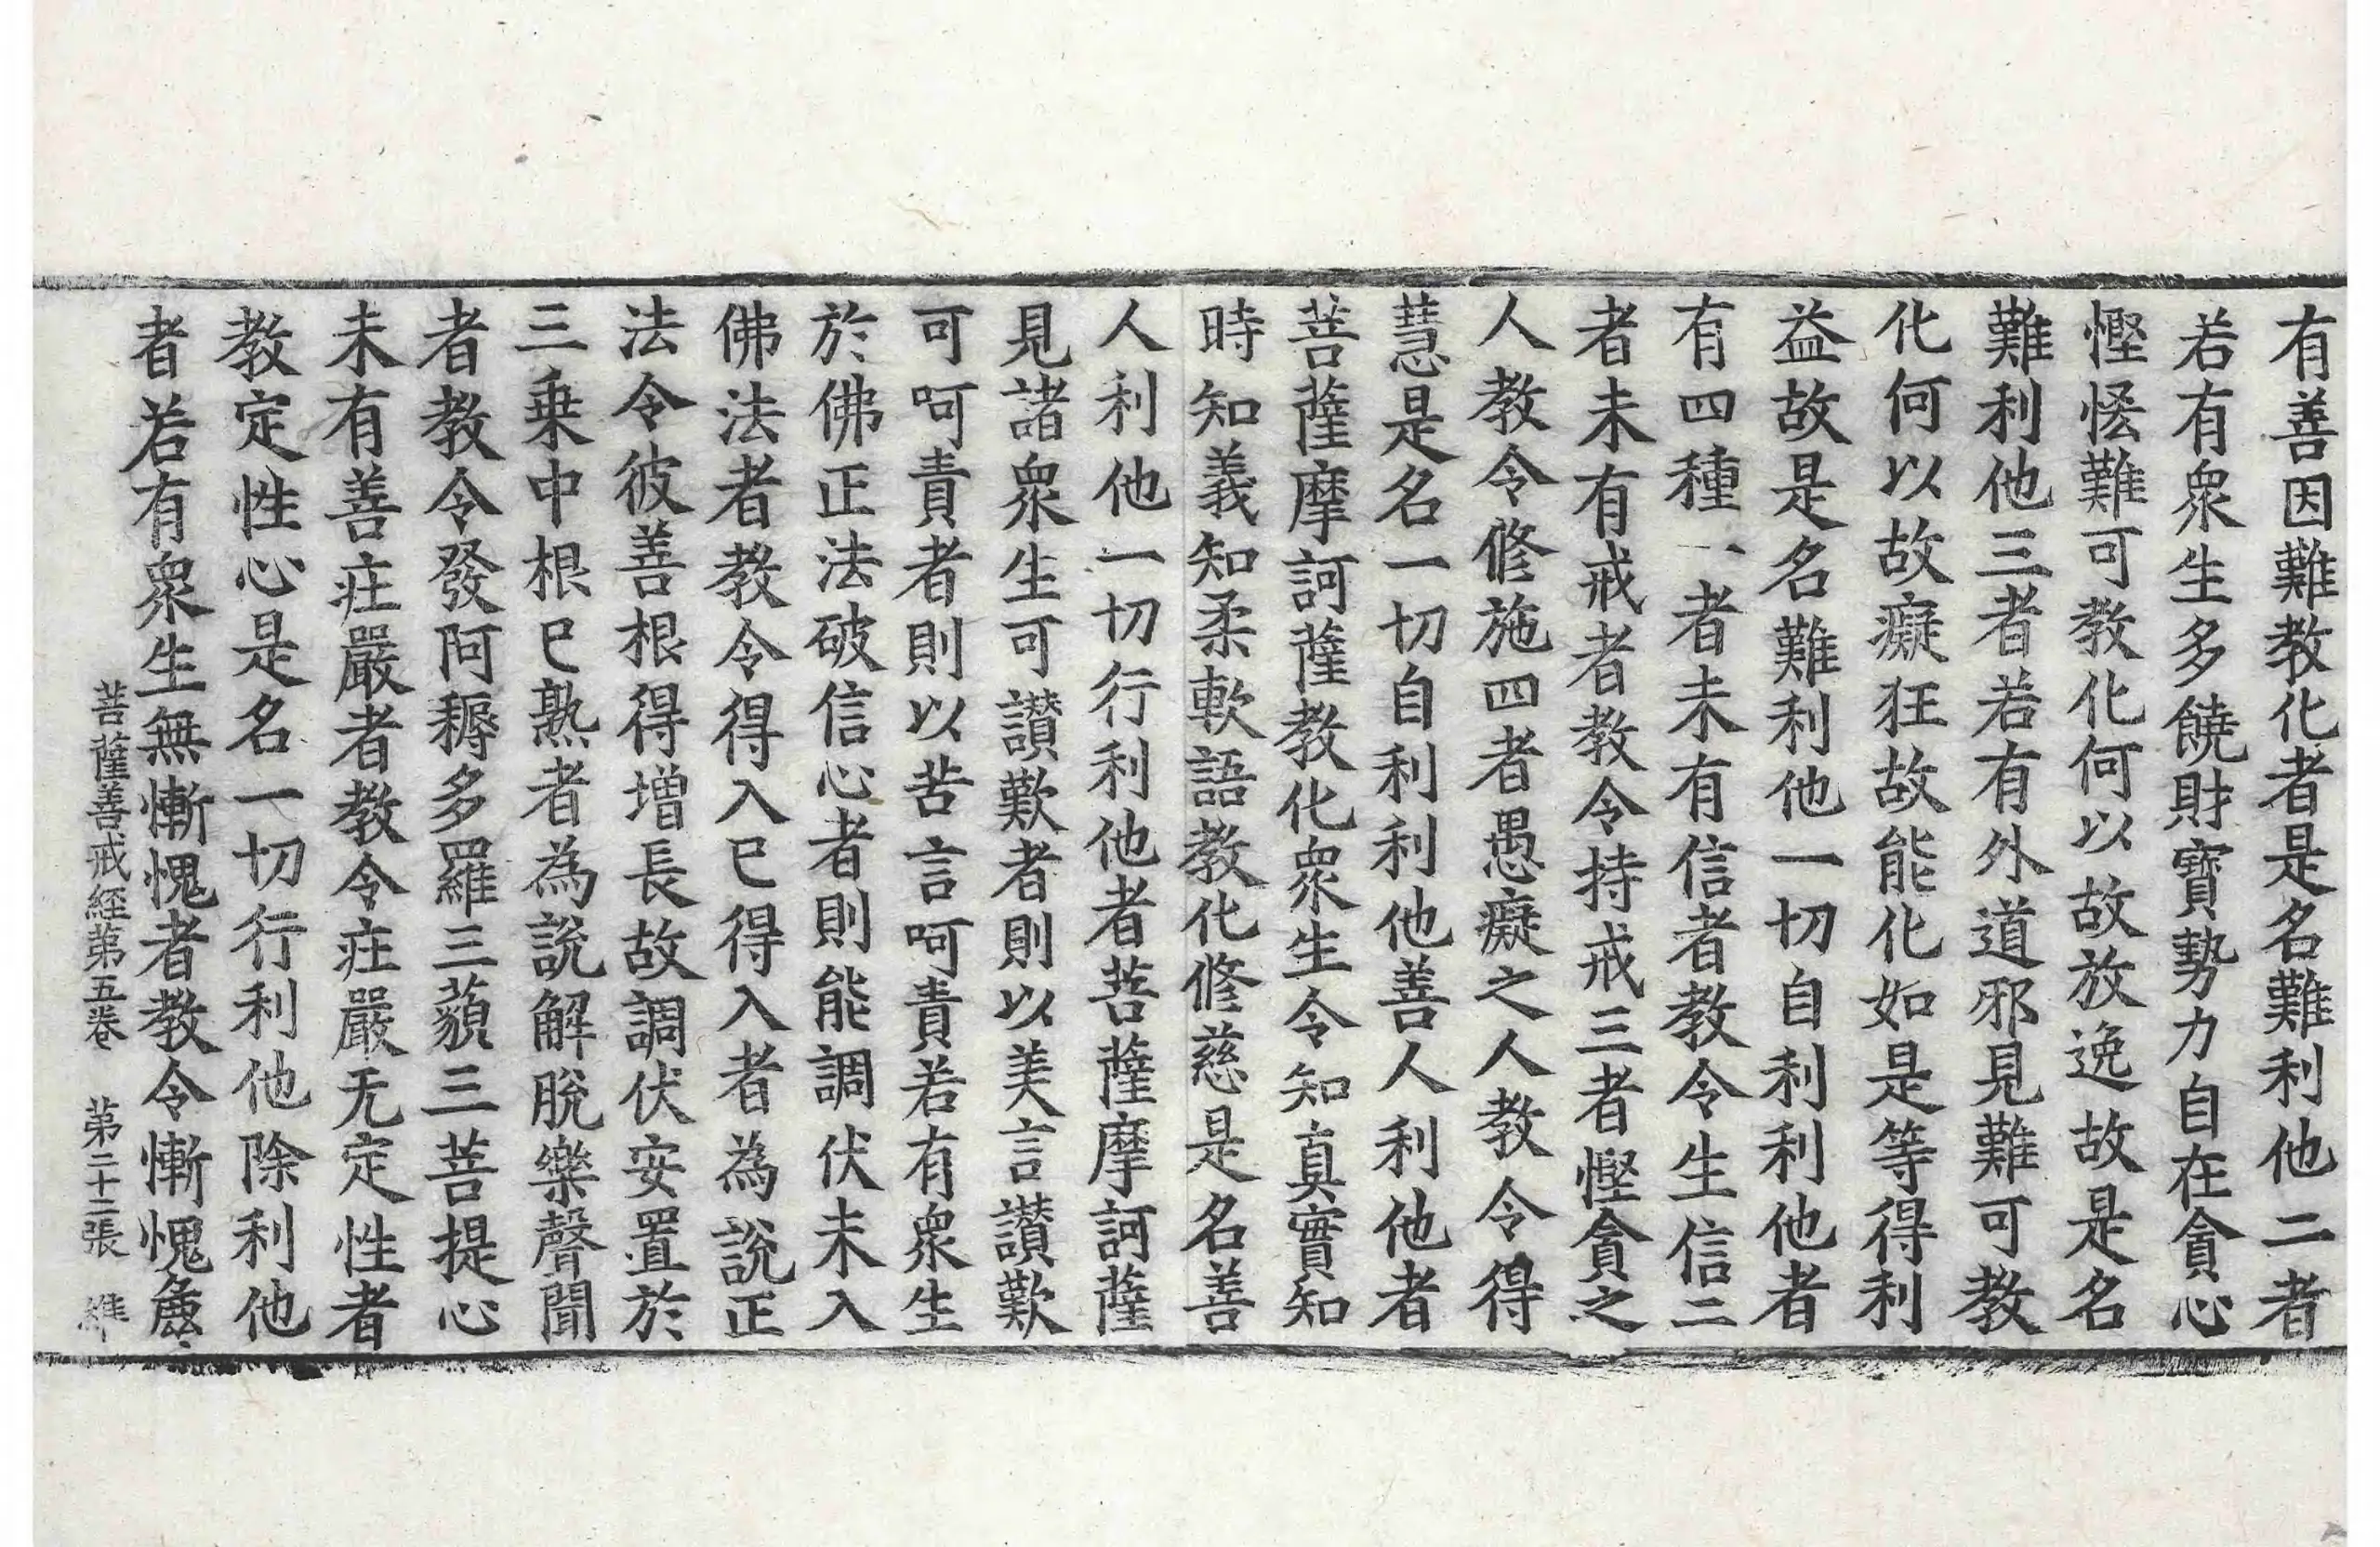 有善因難教化者是名難利他二者
若有衆生多饒財寶勢力自在貪心
慳悋難可教化何以故放逸故是名
難利他三者若有外道邪見難可教
化何以故癡狂故能化如是等得利
益故是名難利他一切自利利他者
有四種一者未有信者教令生信二
者未有戒者教令持戒三者慳貪之
人教令修施四者愚癡之人教令得
慧是名一切自利利他善人利他者
菩薩摩訶薩教化衆生令知真實知
時知義知柔軟語教化修慈是名善
人利他一切行利他者菩薩摩訶薩
見諸衆生可讃歎者則以美言讃歎
可呵責者則以苦言呵責若有衆生
於佛正法破信心者則能調伏未入
佛法者教令得入已得入者為說正
法令彼善根得增長故調伏安置於
三乗中根已熟者為說解脫樂聲聞
者教令發阿耨多羅三藐三菩提心
未有善疰嚴者教令疰嚴无定性者
教定性心是名一切行利他除利他
者若有衆生無慚愧者教令慚愧麁
菩薩善戒経第五卷 第二十二張 維